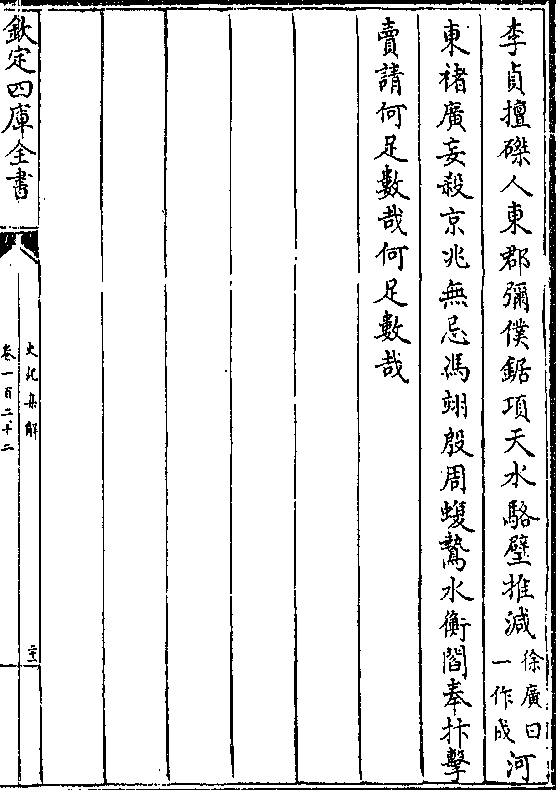 李貞擅磔人東郡彌僕鋸項天水駱璧推減徐廣曰一作成河
東褚廣妄殺京兆無忌馮翊殷周蝮鷙水衡閻奉抃擊
賣請何足數哉何足數哉
欽定四庫全書
史記集解
卷一百二十二
二十二